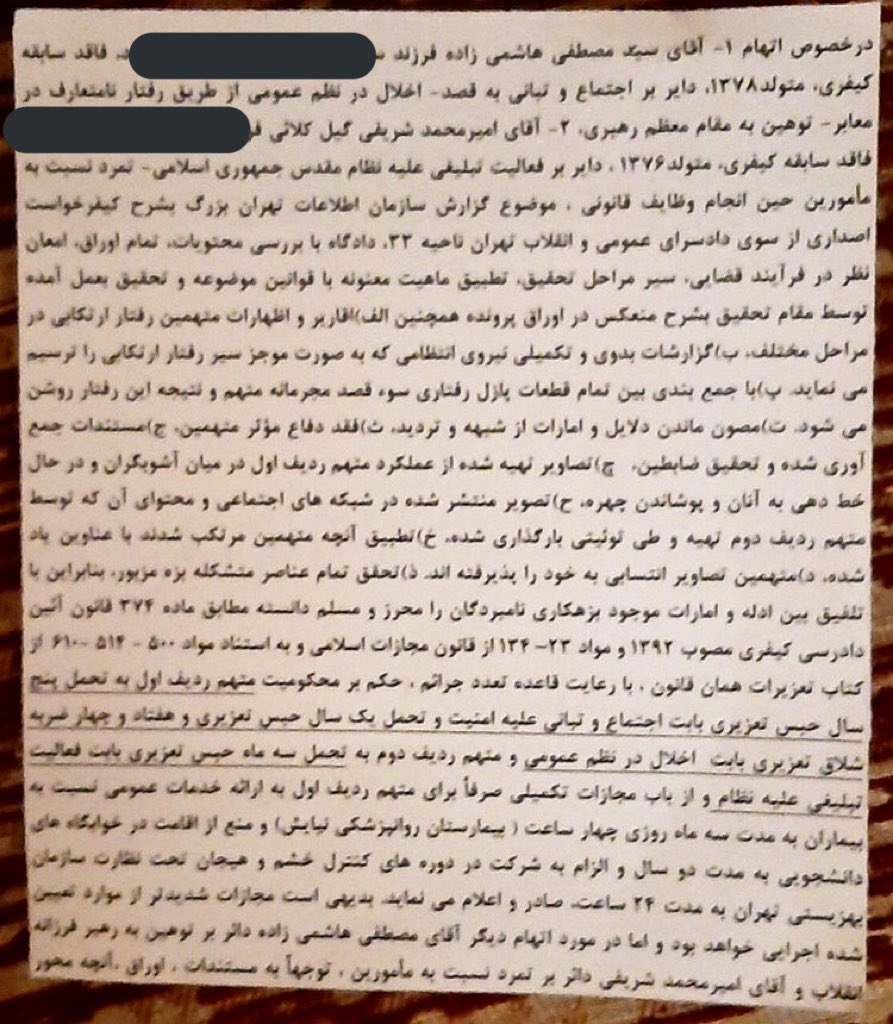 درخصوص اتهام ۱- آقای سید مصطفی هاشمی زاده فرزند فاقد سابقه
کیفری، متولد۱۳۷۸، دایر بر اجتماع و تبانی به قصد- اخلال در نظم عمومی از طریق رفتار نامتعارف در
معابر- توهین به مقام معظم رهبری، ۲- آقای امیرمحمد شریفی گیل کلائی
فاقد سابقه کیفری، متولد۱۳۷۶ ، دایر بر فعالیت تبلیغی علیه نظام مقدس جمهوری اسلامی- تمرد نسبت به
مأمورین حین انجام وظایف قانونی ، موضوع گزارش سازمان اطلاعات تهران بزرگ بشرح کیفرخواست
اصداری از سوی دادسرای عمومی و انقلاب تهران ناحیه ۳۳، دادگاه با بررسی محتویات، تمام اوراق، امعان
نظر در فرآیند قضایی، سیر مراحل تحقیق، تطبیق ماهیت معنونه با قوانین موضوعه و تحقیق بعمل آمده
توسط مقام تحقیق بشرح منعکس در اوراق پرونده همچنین الف)اقاریر و اظهارات متهمین رفتار ارتکابی در
مراحل مختلف، ب)گزارشات بدوی و تکمیلی نیروی انتظامی که به صورت موجز سیر رفتار ارتکابی را ترسیم
می نماید. پ)با جمع بندی بین تمام قطعات پازل رفتاری سوء قصد مجرمانه متهم و نتیجه این رفتار روشن
می شود. ت)مصون ماندن دلایل و امارات از شبهه و تردید، ث)فقد دفاع مؤثر متهمین، ج)مستندات جمع
آوری شده و تحقیق ضابطین، چ)تصاویر تهیه شده از عملکرد متهم ردیف اول در میان آشوبگران و در حال
خط دهی به آنان و پوشاندن چهره، ح)تصویر منتشر شده در شبکه های اجتماعی و محتوای آن که توسط
متهم ردیف دوم تهیه و طی توئیتی بارگذاری شده، خ)تطبیق آنچه متهمین مرتکب شدند با عناوین یاد
شده، د)متهمین تصاویر انتسابی به خود را پذیرفته اند. ذ)تحقق تمام عناصر متشکله بزه مزبور، بنابراین با
تلفیق بین ادله و امارات موجود بزهکاری نامبردگان را محرز و مسلم دانسته مطابق ماده ۳۷۴ قانون آئین
دادرسی کیفری مصوب ۱۳۹۲ و مواد ۲۳- ۱۳۴ از قانون مجازات اسلامی و به استناد مواد ۵۰۰ - ۵۱۴ -۶۱۰ از
کتاب تعزیرات همان قانون ، با رعایت قاعده تعدد جرائم ، حکم بر محکومیت متهم ردیف اول به تحمل پنج
سال حبس تعزیری بابت اجتماع و تبانی علیه امنیت و تحمل یک سال حبس تعزیری و هفتاد و چهار ضربه
شلاق تعزیری بابت اخلال در نظم عمومی و متهم ردیف دوم به تحمل سه ماه حبس تعزیری بابت فعالیت
تبلیغی علیه نظام و از باب مجازات تکمیلی صرفاً برای متهم ردیف اول به ارائه خدمات عمومی نسبت به
بیماران به مدت سه ماه روزی چهار ساعت ( بیمارستان روانپزشکی نیایش) و منع از اقامت در خوابگاه های
دانشجویی به مدت دو سال و الزام به شرکت در دوره های کنترل خشم و هیجان تحت نظارت سازمان
بهزیستی تهران به مدت ۲۴ ساعت، صادر و اعلام می نماید. بدیهی است مجازات شدیدتر از موارد تعیین
شده اجرایی خواهد بود و اما در مورد اتهام دیگر آقای مصطفی هاشمی زاده دائر بر توهین به رهبر فرزانه
انقلاب و آقای امیرمحمد شریفی دائر بر تمرد نسبت به مأمورین ، توجهاً به مستندات ، اوراق ،آنچه محور